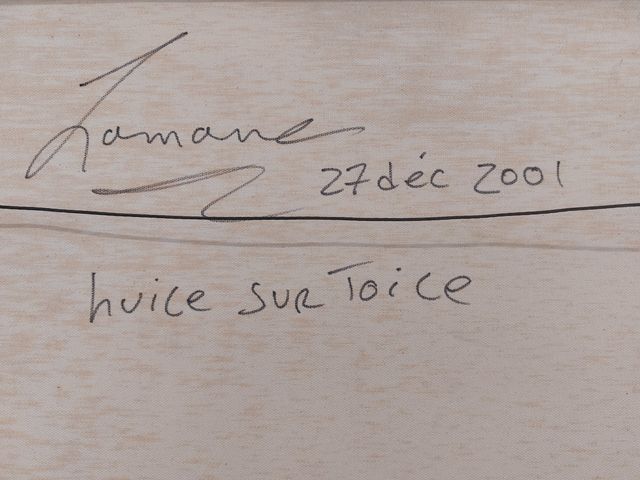 Lamane
27 déc 2001
huile sur Toile